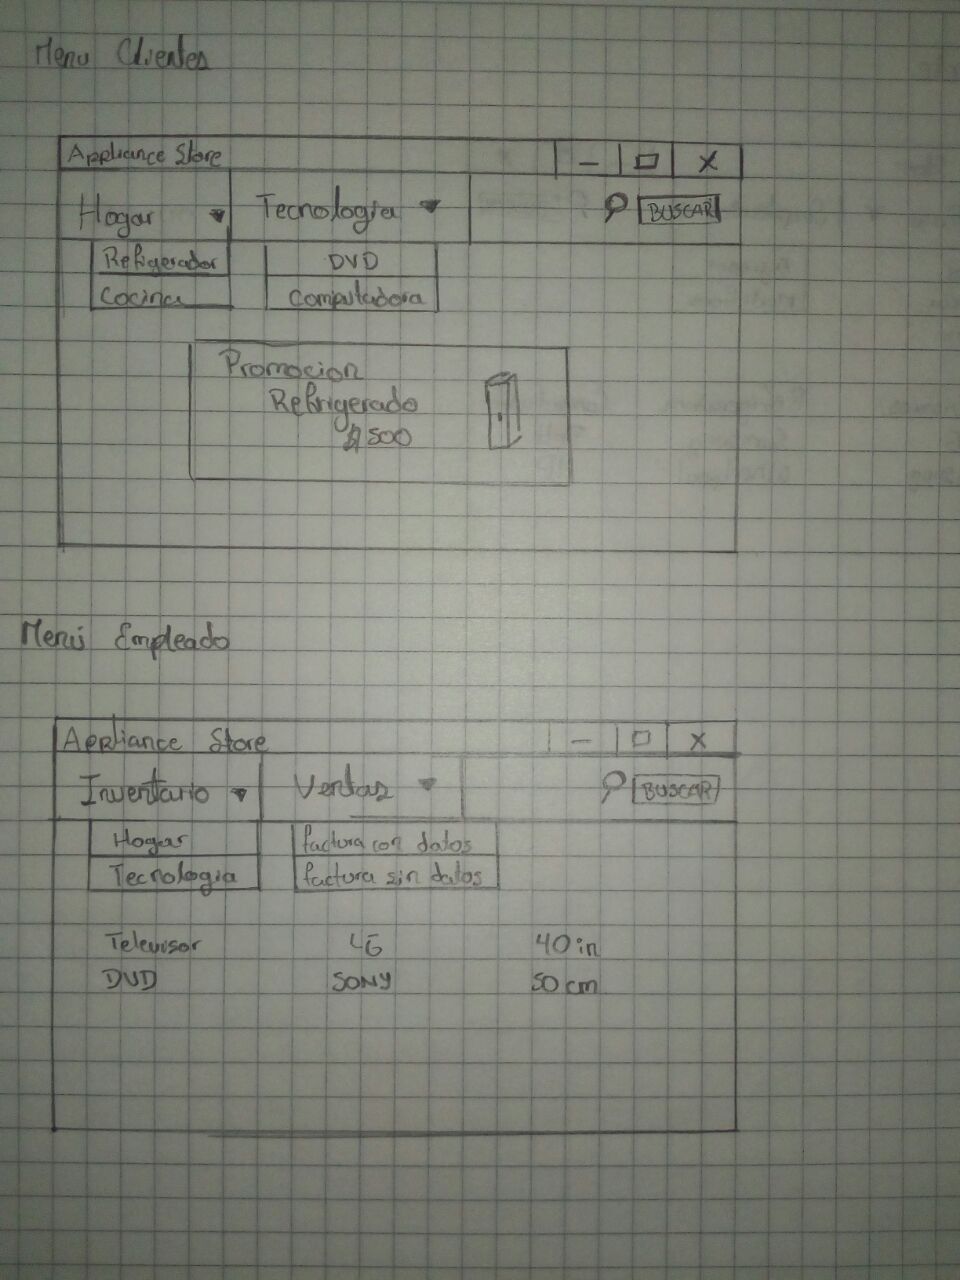 Menu Clientes
Appliance Store
Hogar Tecnologia BUSCAR
Refrigerador DVD
Cocina Computadora
Promocion
Refrigerado
$500
Menú Empleado
Appliance Store
Inventario Ventas BUSCAR
Hogar factura con datos
Tecnologia factura sin datos
Televisor LG 40 in
DVD SONY 50 cm